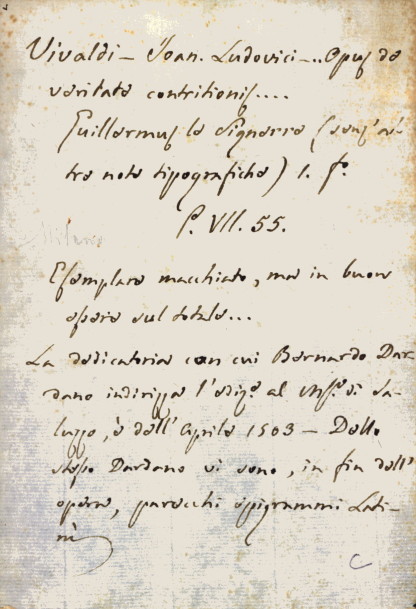 Vivaldi – Joan. Ludovici – .. Opus de
veritate contritionis....
Guillermus le Signerre (senz'al-
tre note tipografiche) 1. fº.
P. VII. 55.
Milano
Esemplare macchiato, ma in buon
essere sul totale...
La dedicatoria con cui Bernardo Dar-
dano indirizza l'ediz.e al di Sa-
luzzo, è dell'Aprile 1503 – Dello
stesso Dardano vi sono, in fin dell'
opera, parecchi epigrammi Lati-
ni
C